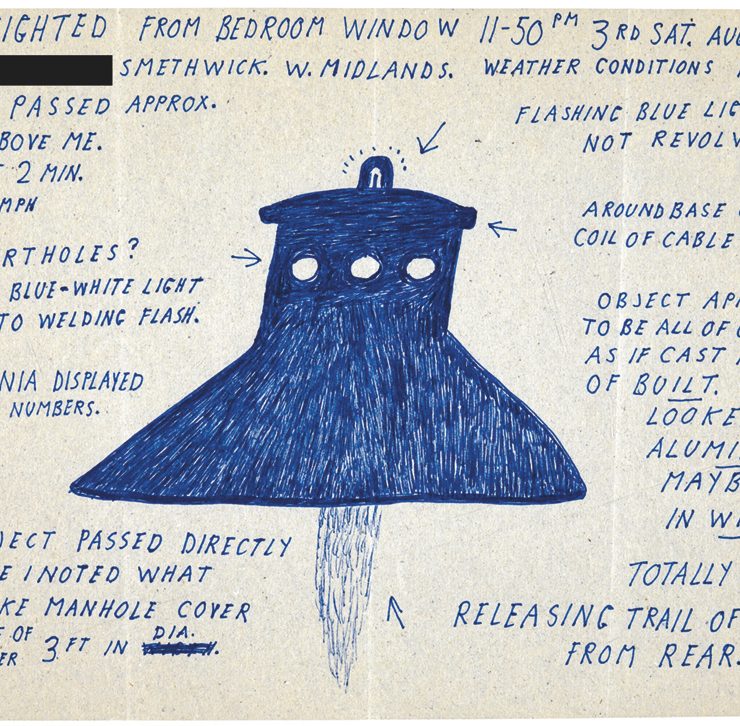 IGHTED FROM BEDROOM WINDOW 11-50 PM 3RD SAT. AUG
SMETHWICK. W. MIDLANDS. WEATHER CONDITIONS
PASSED APPROX.
BOVE ME.
2 MIN.
MPH
FLASHING BLUE LIG
NOT REVOLV
AROUND BASE
COIL OF CABLE
RTHOLES?
BLUE-WHITE LIGHT
TO WELDING FLASH.
NIA DISPLAYED
NUMBERS.
OBJECT AP
TO BE ALL OF
AS IF CAST
OF BUILT.
LOOKE
ALUMI
MAYB
IN W
JECT PASSED DIRECTLY
E I NOTED WHAT
KE MANHOLE COVER
E OF
ER 3 FT IN DIA.
TOTALLY
RELEASING TRAIL OF
FROM REAR.